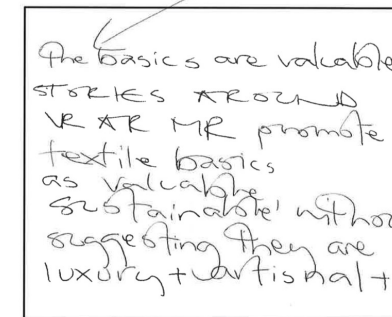 The basics are valuable
STORIES AROUND
VR AR MR promote
textile basics
as valuable
sustainable' withou
suggesting they are
luxury + artisnal +